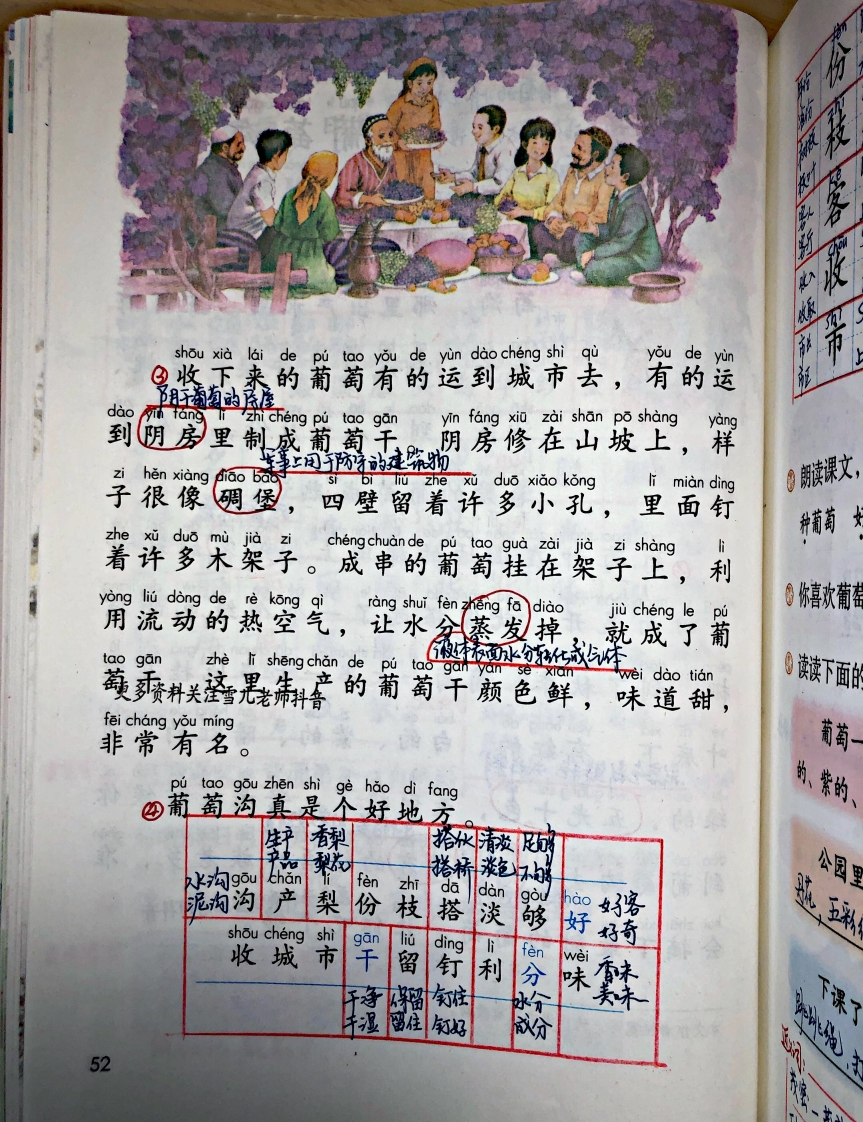 shōu xià lái de pú tao yǒu de yùn dào chéng shì qù yǒu de yùn
③收下来的葡萄有的运到城市去，有的运
阴干葡萄的房屋
dào yīn fáng lǐ zhì chéng pú tao gān yīn fáng xiū zài shān pō shàng yàng
到阴房里制成葡萄干。阴房修在山坡上，样
军事上用于防守的建筑物
zi hěn xiàng diāo bǎo sì bì liú zhe xǔ duō xiǎo kǒng lǐ miàn dìng
子很像碉堡，四壁留着许多小孔，里面钉
zhe xǔ duō mù jià zi chéng chuàn de pú tao guà zài jià zi shàng lì
着许多木架子。成串的葡萄挂在架子上，利
yòng liú dòng de rè kōng qì ràng shuǐ fèn zhēng fā diào jiù chéng le pú
用流动的热空气，让水分蒸发掉 就成了葡
液体表面水分转化成气体
tao gān zhè lǐ shēng chǎn de pú tao gān yán sè xiān wèi dào tián
萄干 这里生产的葡萄干颜色鲜，味道甜，
更多资料关注雪尤老师抖音
fēi cháng yǒu míng
非常有名。
pú tao gōu zhēn shì gè hǎo dì fang
④葡萄沟真是个好地方。
生产 香梨 搭伙 清淡 足够
产品 梨花 搭桥 淡色 不够
水沟 泥沟
gōu chǎn lí fèn zhī dā dàn gòu hào
沟 产 梨 份 枝 搭 淡 够 好
好客 好奇
shōu chéng shì gān liú dìng lì fèn wèi
收 城 市 干 留 钉 利 分 味
香味 美味
干净 保留 钉住 水分
干湿 留住 钉好 成分
52
份
枝
客
shōu
收
shì
市
朗读课文，
种葡萄
你喜欢葡萄
读读下面的
葡萄一
的、紫的、
公园里
花，五彩
下课了
跳绳，打